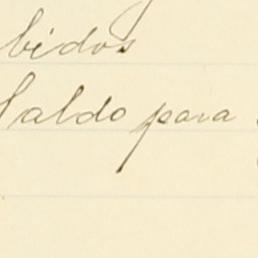 bidos
Saldo para